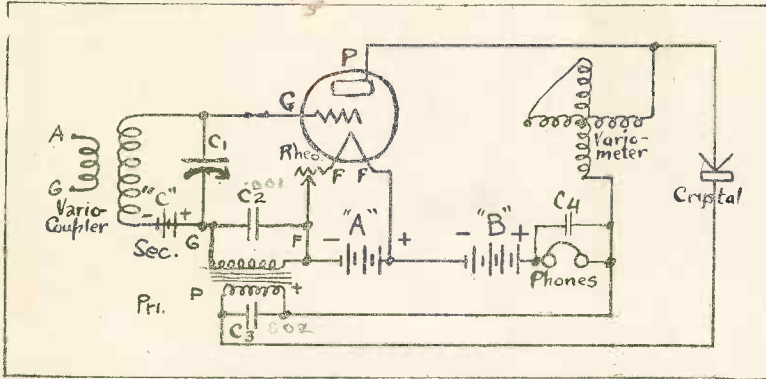 P
G
A
G
Vario-
Coupler
C1
Rheo.
F F
Vario-
meter
Crystal
"C"
- +
Sec.
G
C2
.001
F
- "A" +
- "B" +
C4
Phones
Pri.
P
+
C3
.002